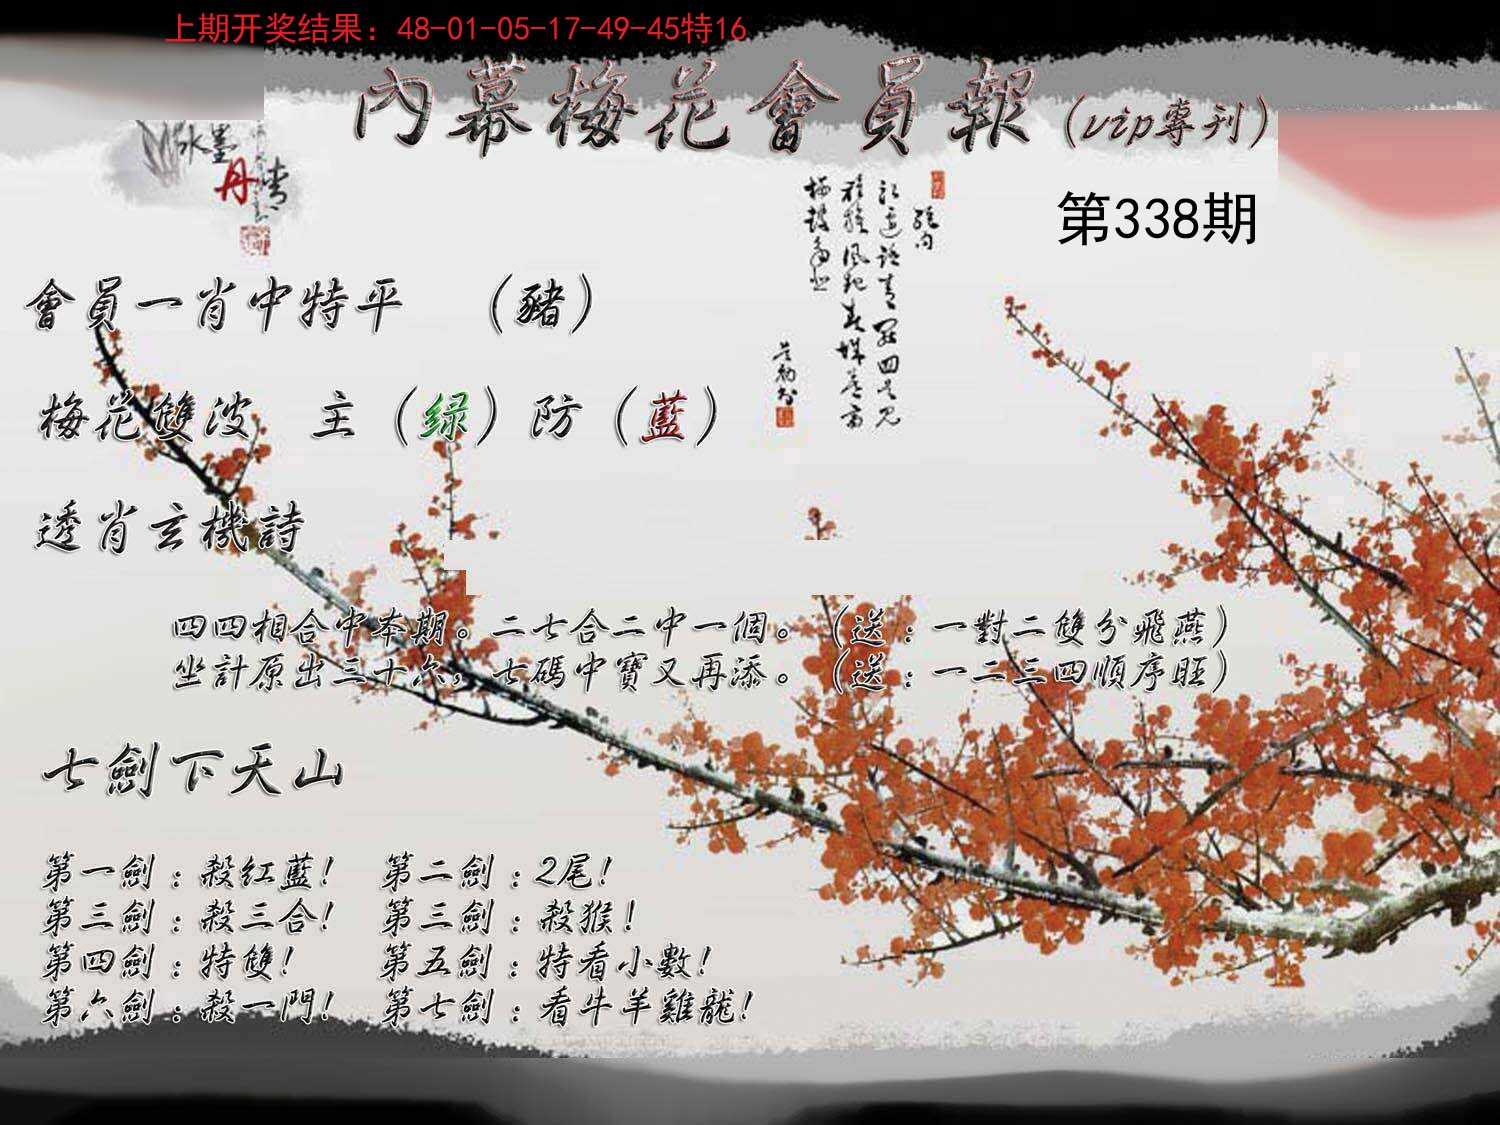 上期开奖结果：48-01-05-17-49-45特16
內幕梅花會員報（vip專刊）
水墨
丹青
第338期
會員一肖中特平　（豬）
梅花雙波　主（绿）防（藍）
透肖玄機詩
四四相合中本期。二七合二中一個。（送：一對二雙分飛燕）
坐計原出三十六，七碼中寶又再添。（送：一二三四順序旺）
七劍下天山
第一劍：殺红藍！　第二劍：2尾！
第三劍：殺三合！　第三劍：殺猴！
第四劍：特雙！　第五劍：特看小數！
第六劍：殺一門！　第七劍：看牛羊雞龍！